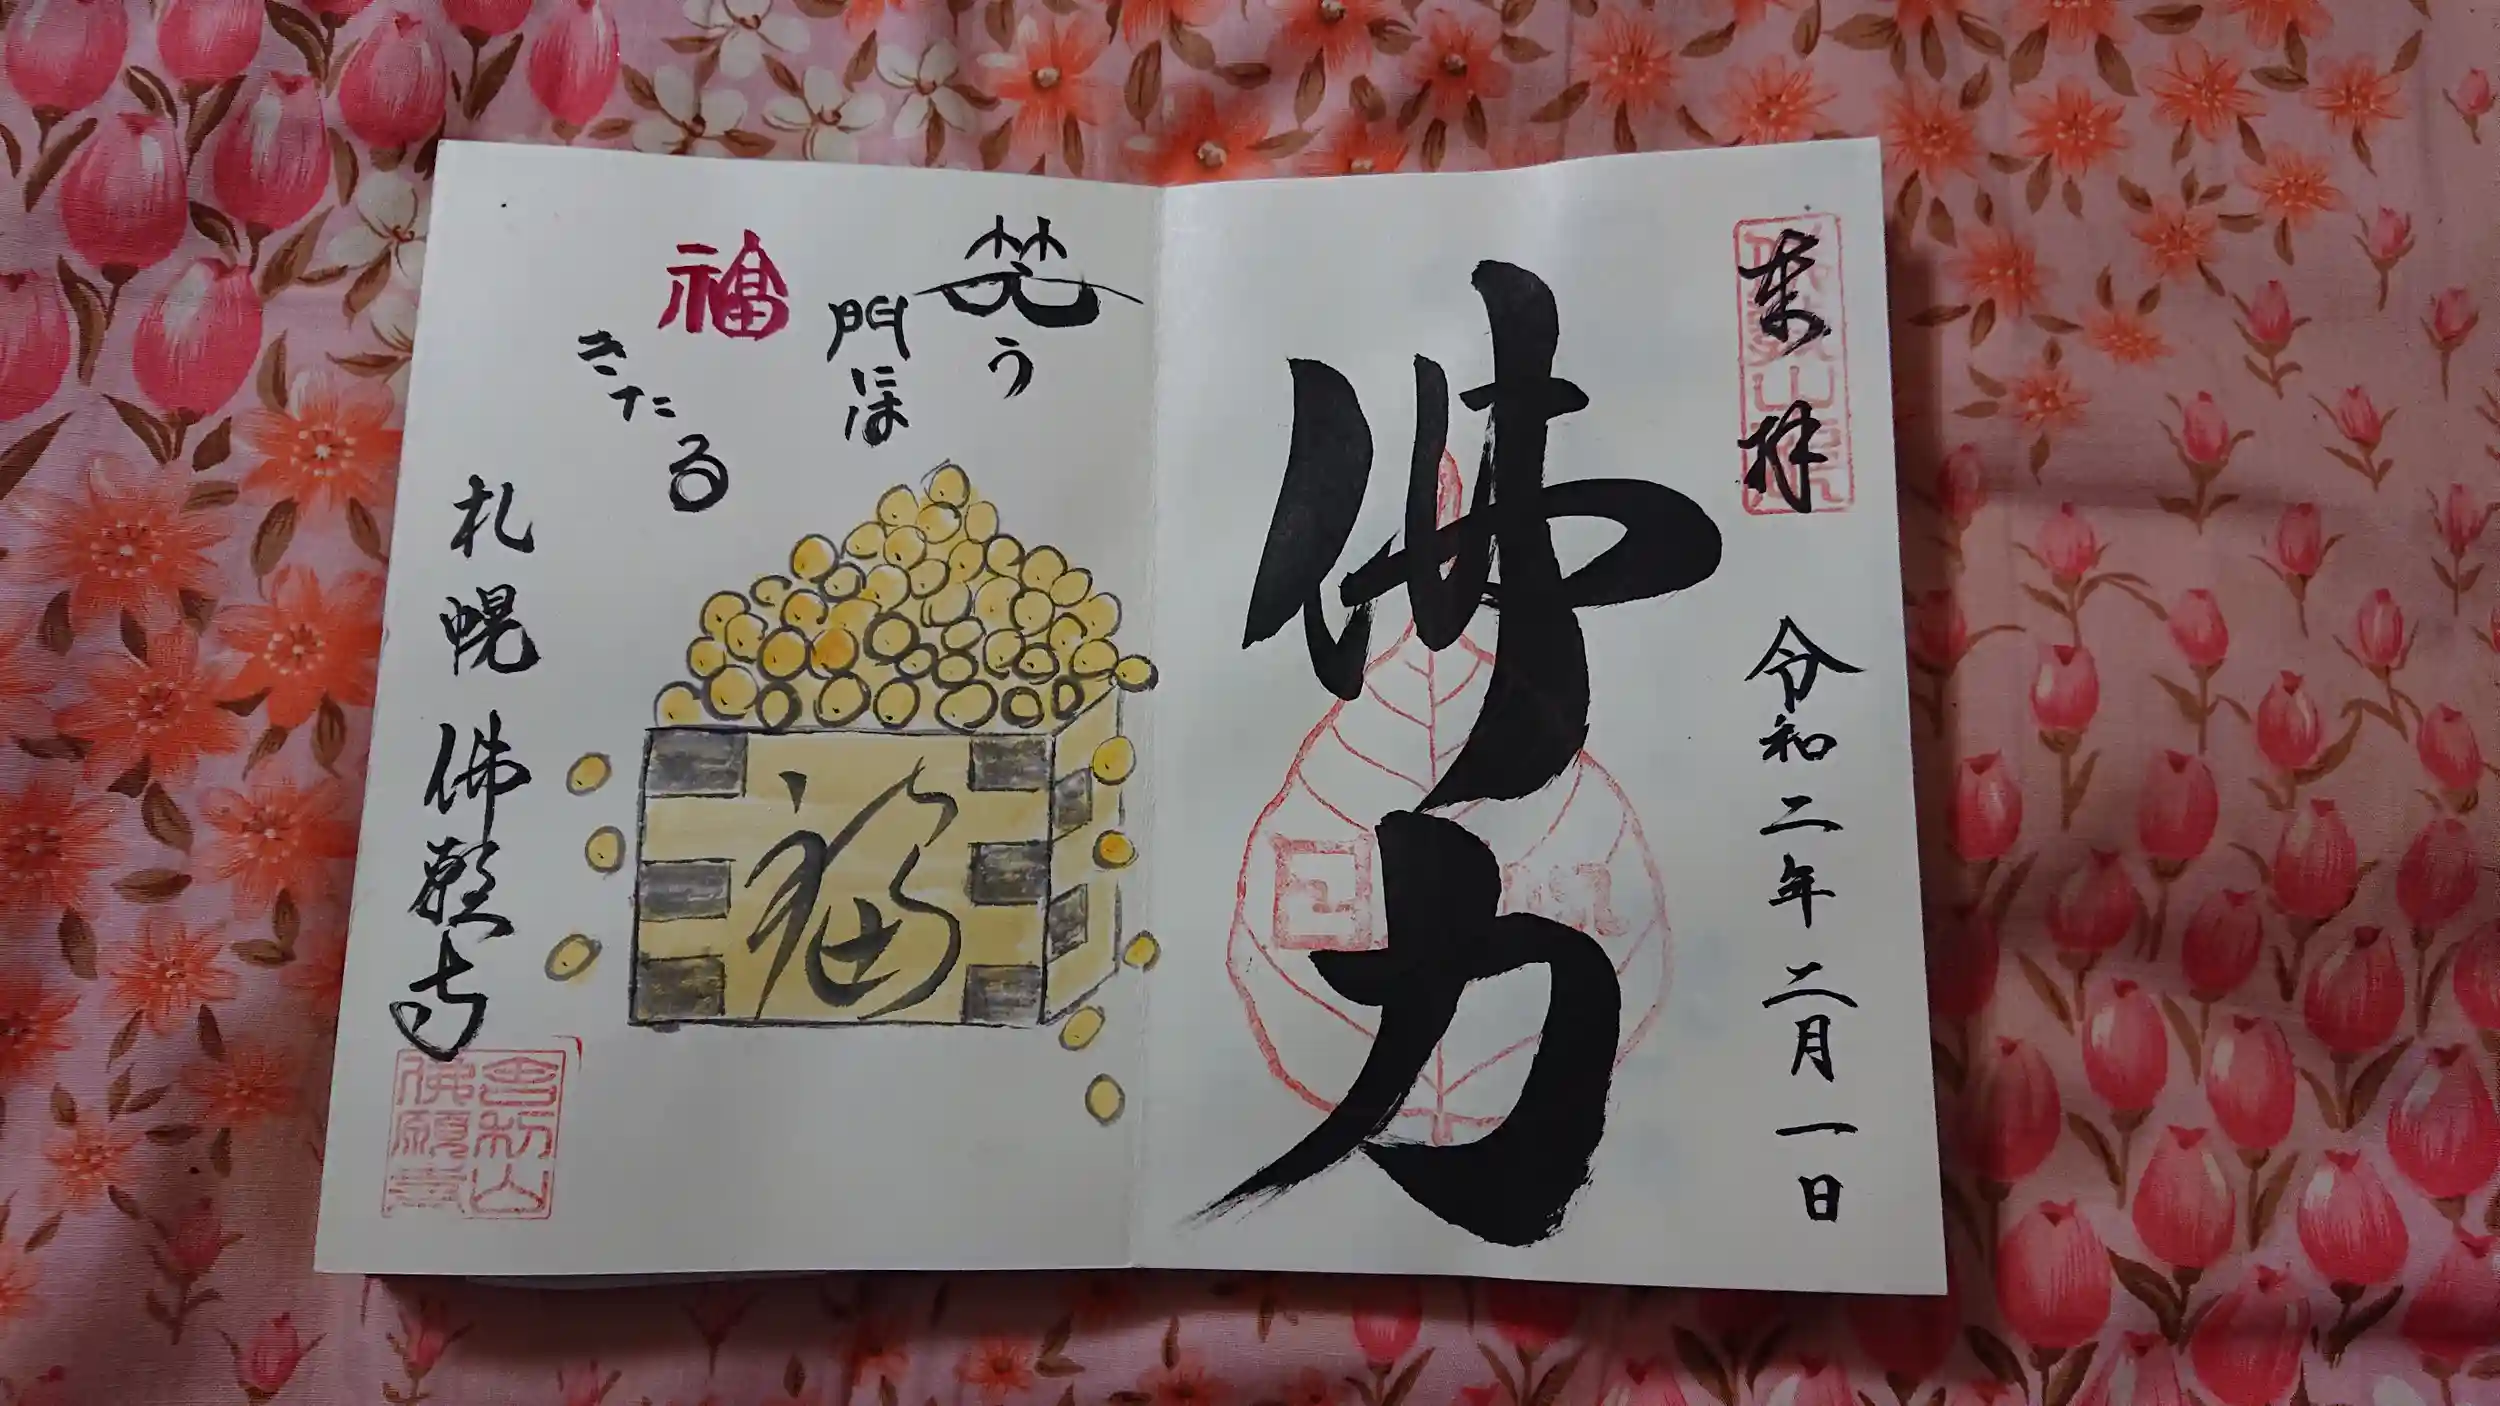 奉拝
令和二年二月一日
佛力
笑う
門には
福
きたる
福
札幌佛願寺
舎利山
佛願寺